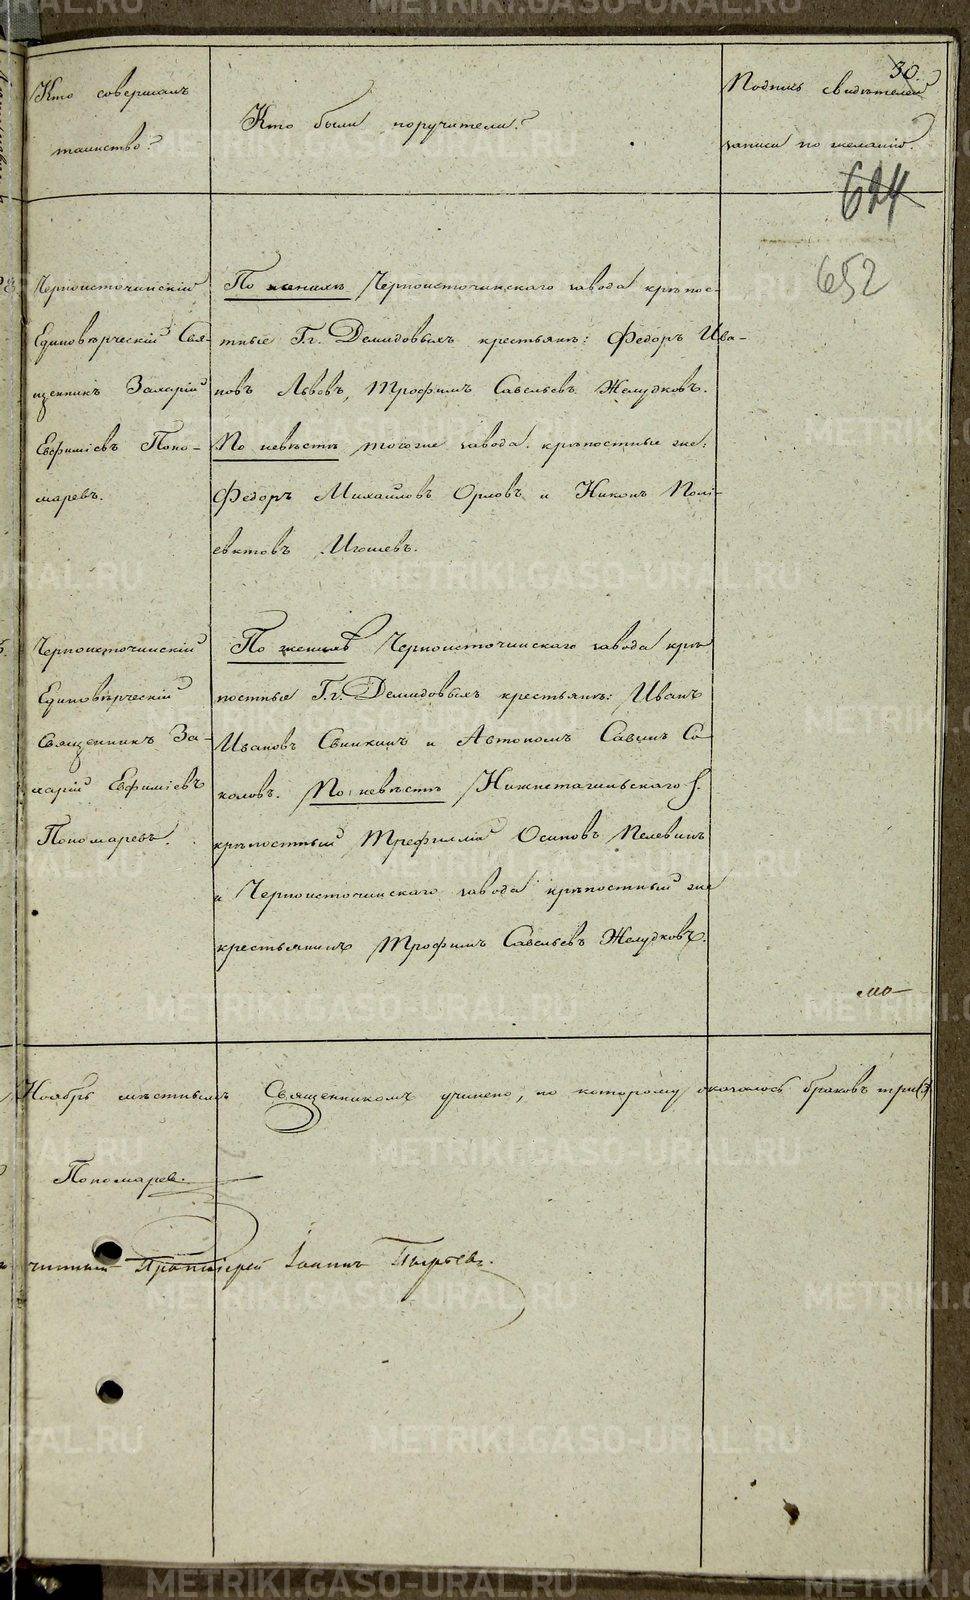 30.
Кто совершалъ
таинство?
Кто были поручители?
Подпись свидѣтелей
записи по желанію.
624
652
Черноисточинскій
Единовѣрческій Свя-
щенникъ Захарій
Евфиміевъ Поно-
маревъ.
По женихѣ Черноисточинскаго завода крѣпос-
тные Г.г. Демидовыхъ крестьяне: Федоръ Ива-
новъ Львовъ, Трофимъ Савельевъ Желудковъ.
По невѣстѣ тогоже завода крѣпостные же:
Федоръ Михайловъ Орловъ и Никонъ Полі-
евктовъ Игошевъ.
Черноисточинскій
Единовѣрческій
Священникъ За-
харій Евфиміевъ
Пономаревъ.
По женихѣ Черноисточинскаго завода крѣ
постные Г.г. Демидовыхъ крестьяне: Иванъ
Ивановъ Свинкинъ и Автономъ Савинъ Со-
коловъ. По невѣстѣ Нижнетагильскаго З.
крѣпостный Трефиллій Осиповъ Пелевинъ
и Черноисточинскаго завода крѣпостный же
крестьянинъ Трофимъ Савельевъ Желудковъ.
мѣ-
Ноябрь мѣстнымъ Священникомъ учинено, по которому оказалось браковъ три (3)
Пономарев.
чинный Протоіерей Іоаннъ Пырьевъ.
METRIKI.GASO-URAL.RU